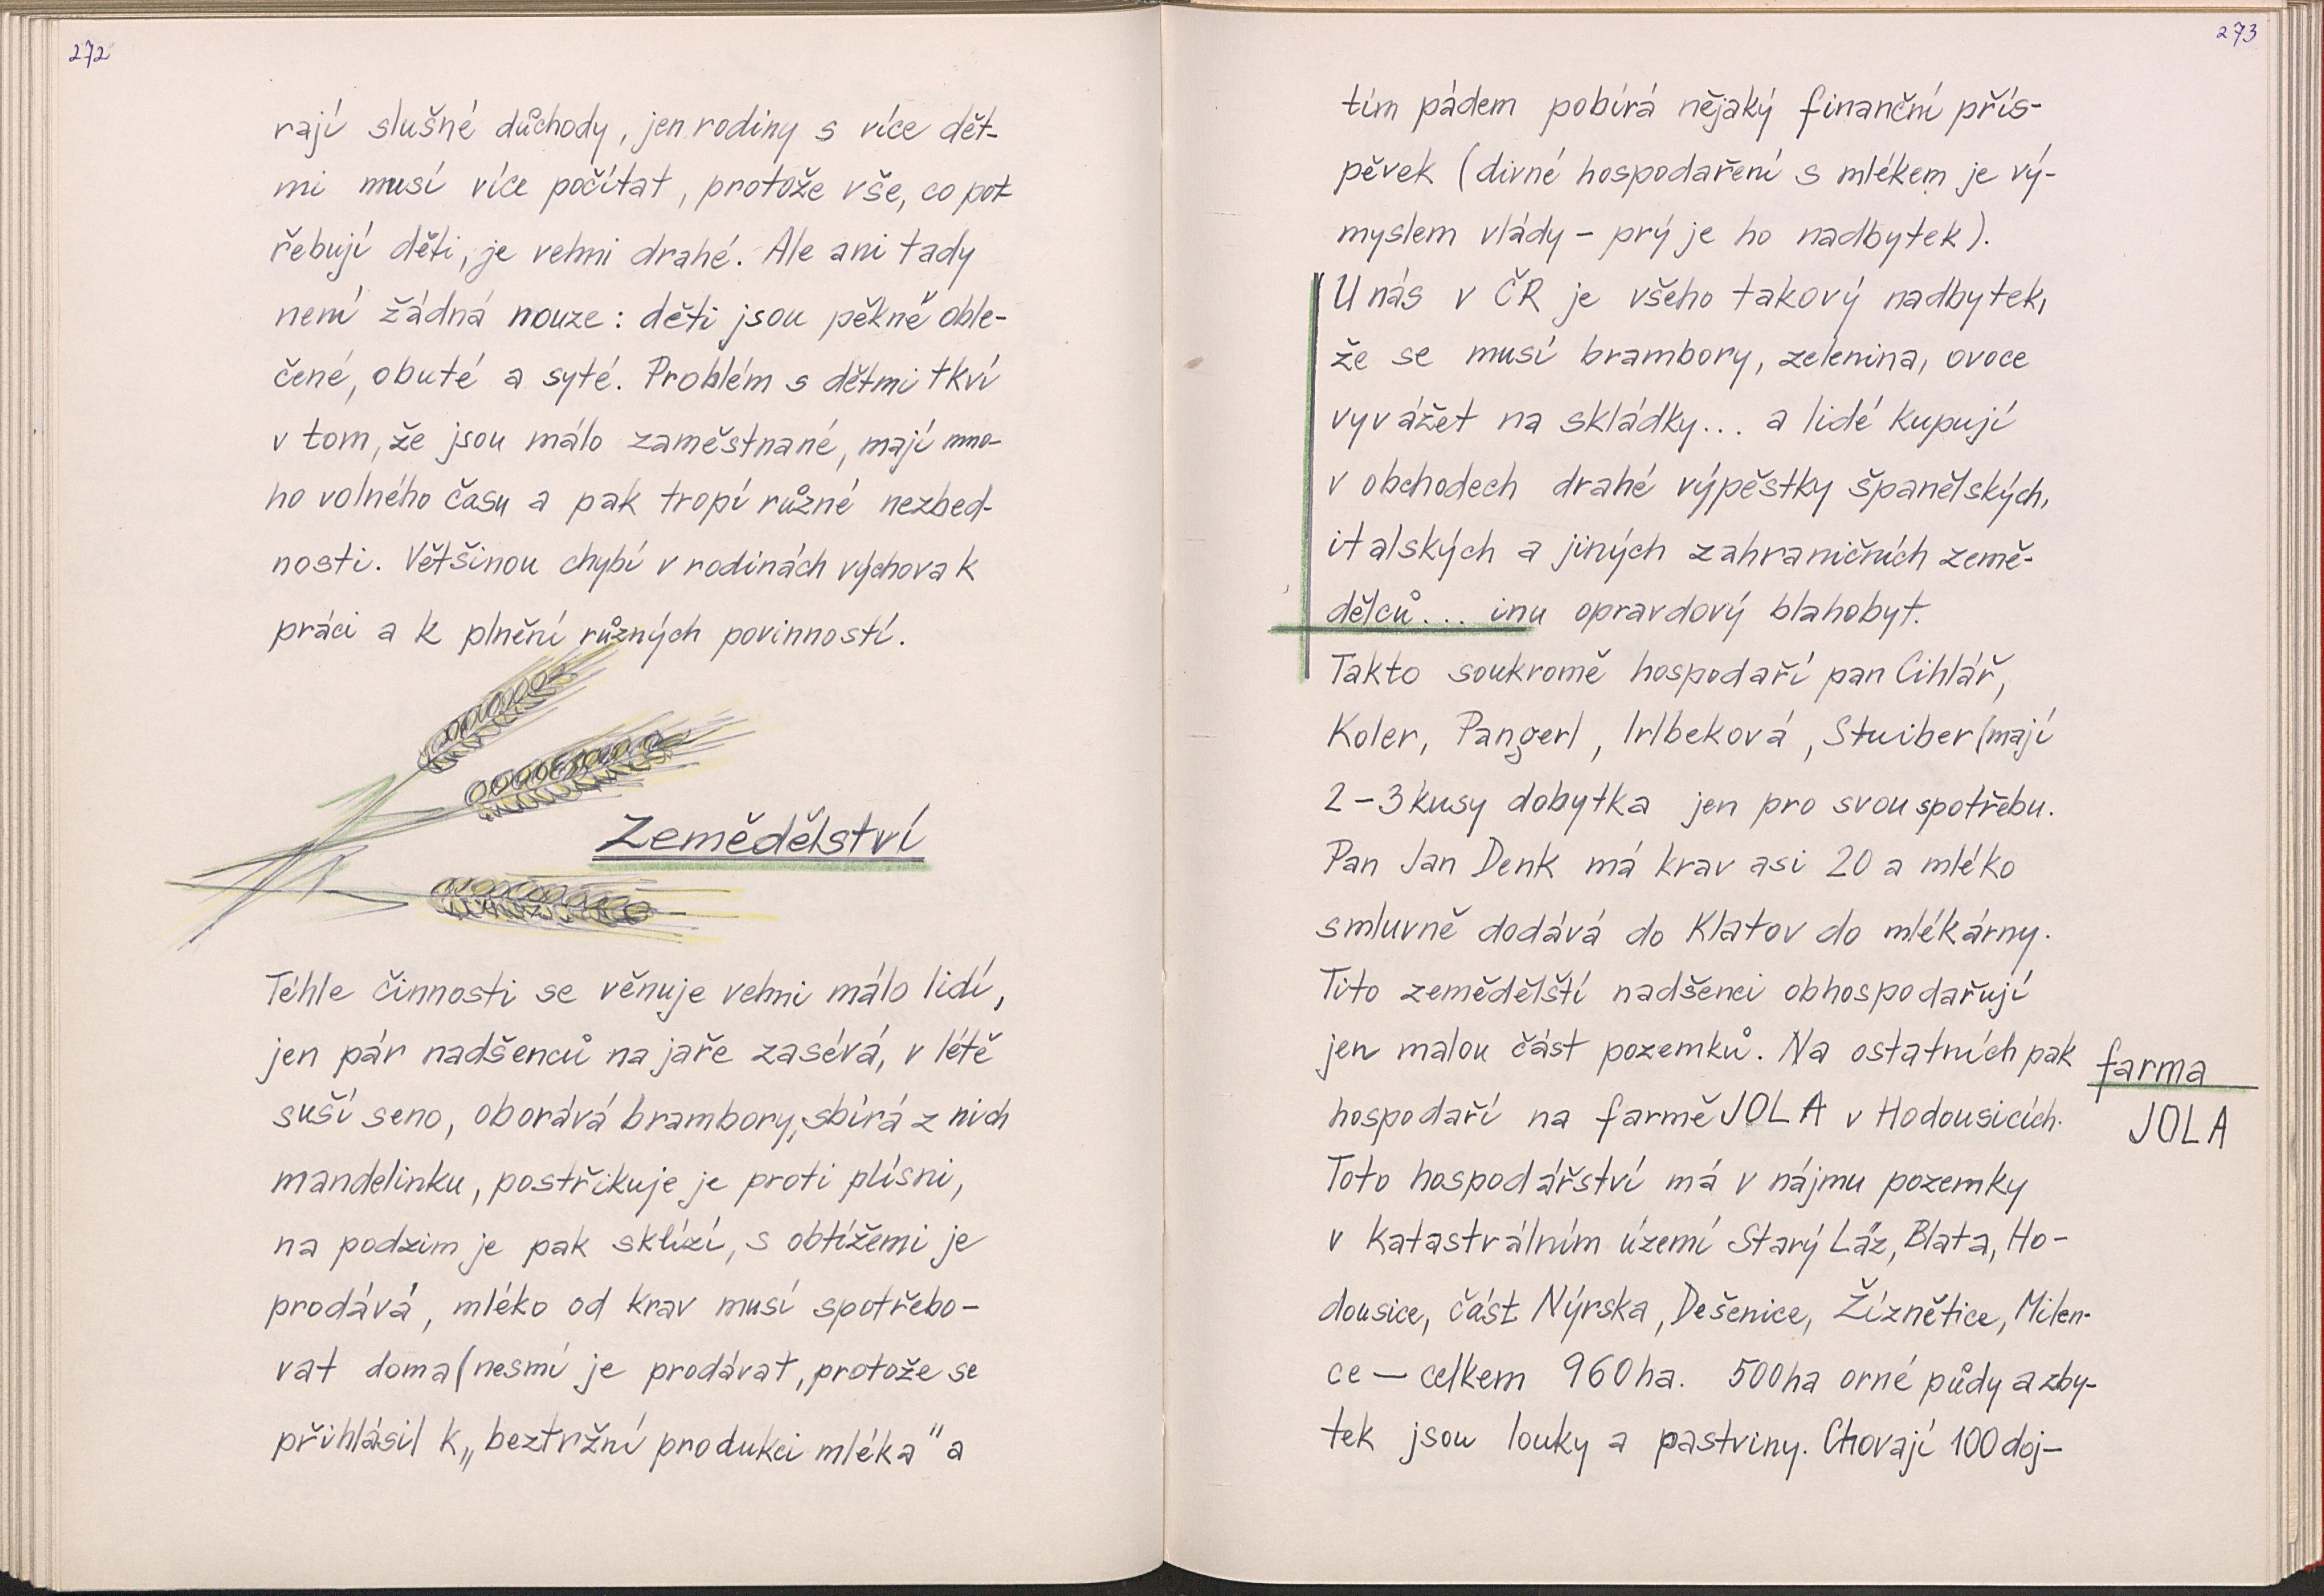 272
rají slušné důchody, jen rodiny s více dět-
mi musí více počítat, protože vše, co pot-
řebují děti, je velmi drahé. Ale ani tady
není žádná nouze: děti jsou pěkně oble-
čené, obuté a syté. Problém s dětmi tkví
v tom, že jsou málo zaměstnané, mají mno-
ho volného času a pak tropí různé nezbed-
nosti. Většinou chybí v rodinách výchova k
práci a k plnění různých povinností.
Zemědělství
Téhle činnosti se věnuje velmi málo lidí,
jen pár nadšenců na jaře zasévá, v létě
suší seno, oborává brambory, sbírá z nich
mandelinku, postřikuje je proti plísni,
na podzim je pak sklízí, s obtížemi je
prodává, mléko od krav musí spotřebo-
vat doma (nesmí je prodávat, protože se
přihlásil k „beztržní produkci mléka" a
273
tím pádem pobírá nějaký finanční přís-
pěvek (divné hospodaření s mlékem je vý-
myslem vlády – prý je ho nadbytek).
U nás v ČR je všeho takový nadbytek,
že se musí brambory, zelenina, ovoce
vyvážet na skládky... a lidé kupují
v obchodech drahé výpěstky španělských,
italských a jiných zahraničních země-
dělců... inu opravdový blahobyt.
Takto soukromě hospodaří pan Cihlář,
Koler, Pangerl, Irlbeková, Stuiber (mají
2–3 kusy dobytka jen pro svou spotřebu.
Pan Jan Denk má krav asi 20 a mléko
smluvně dodává do Klatov do mlékárny.
Tito zemědělští nadšenci obhospodařují
jen malou část pozemků. Na ostatních pak
hospodaří na farmě JOLA v Hodousicích.
farma
JOLA
Toto hospodářství má v nájmu pozemky
v katastrálním území Starý Láz, Blata, Ho-
dousice, část Nýrska, Dešenice, Žíznětice, Milen-
ce – celkem 960 ha. 500 ha orné půdy a zby-
tek jsou louky a pastviny. Chovají 100 doj-